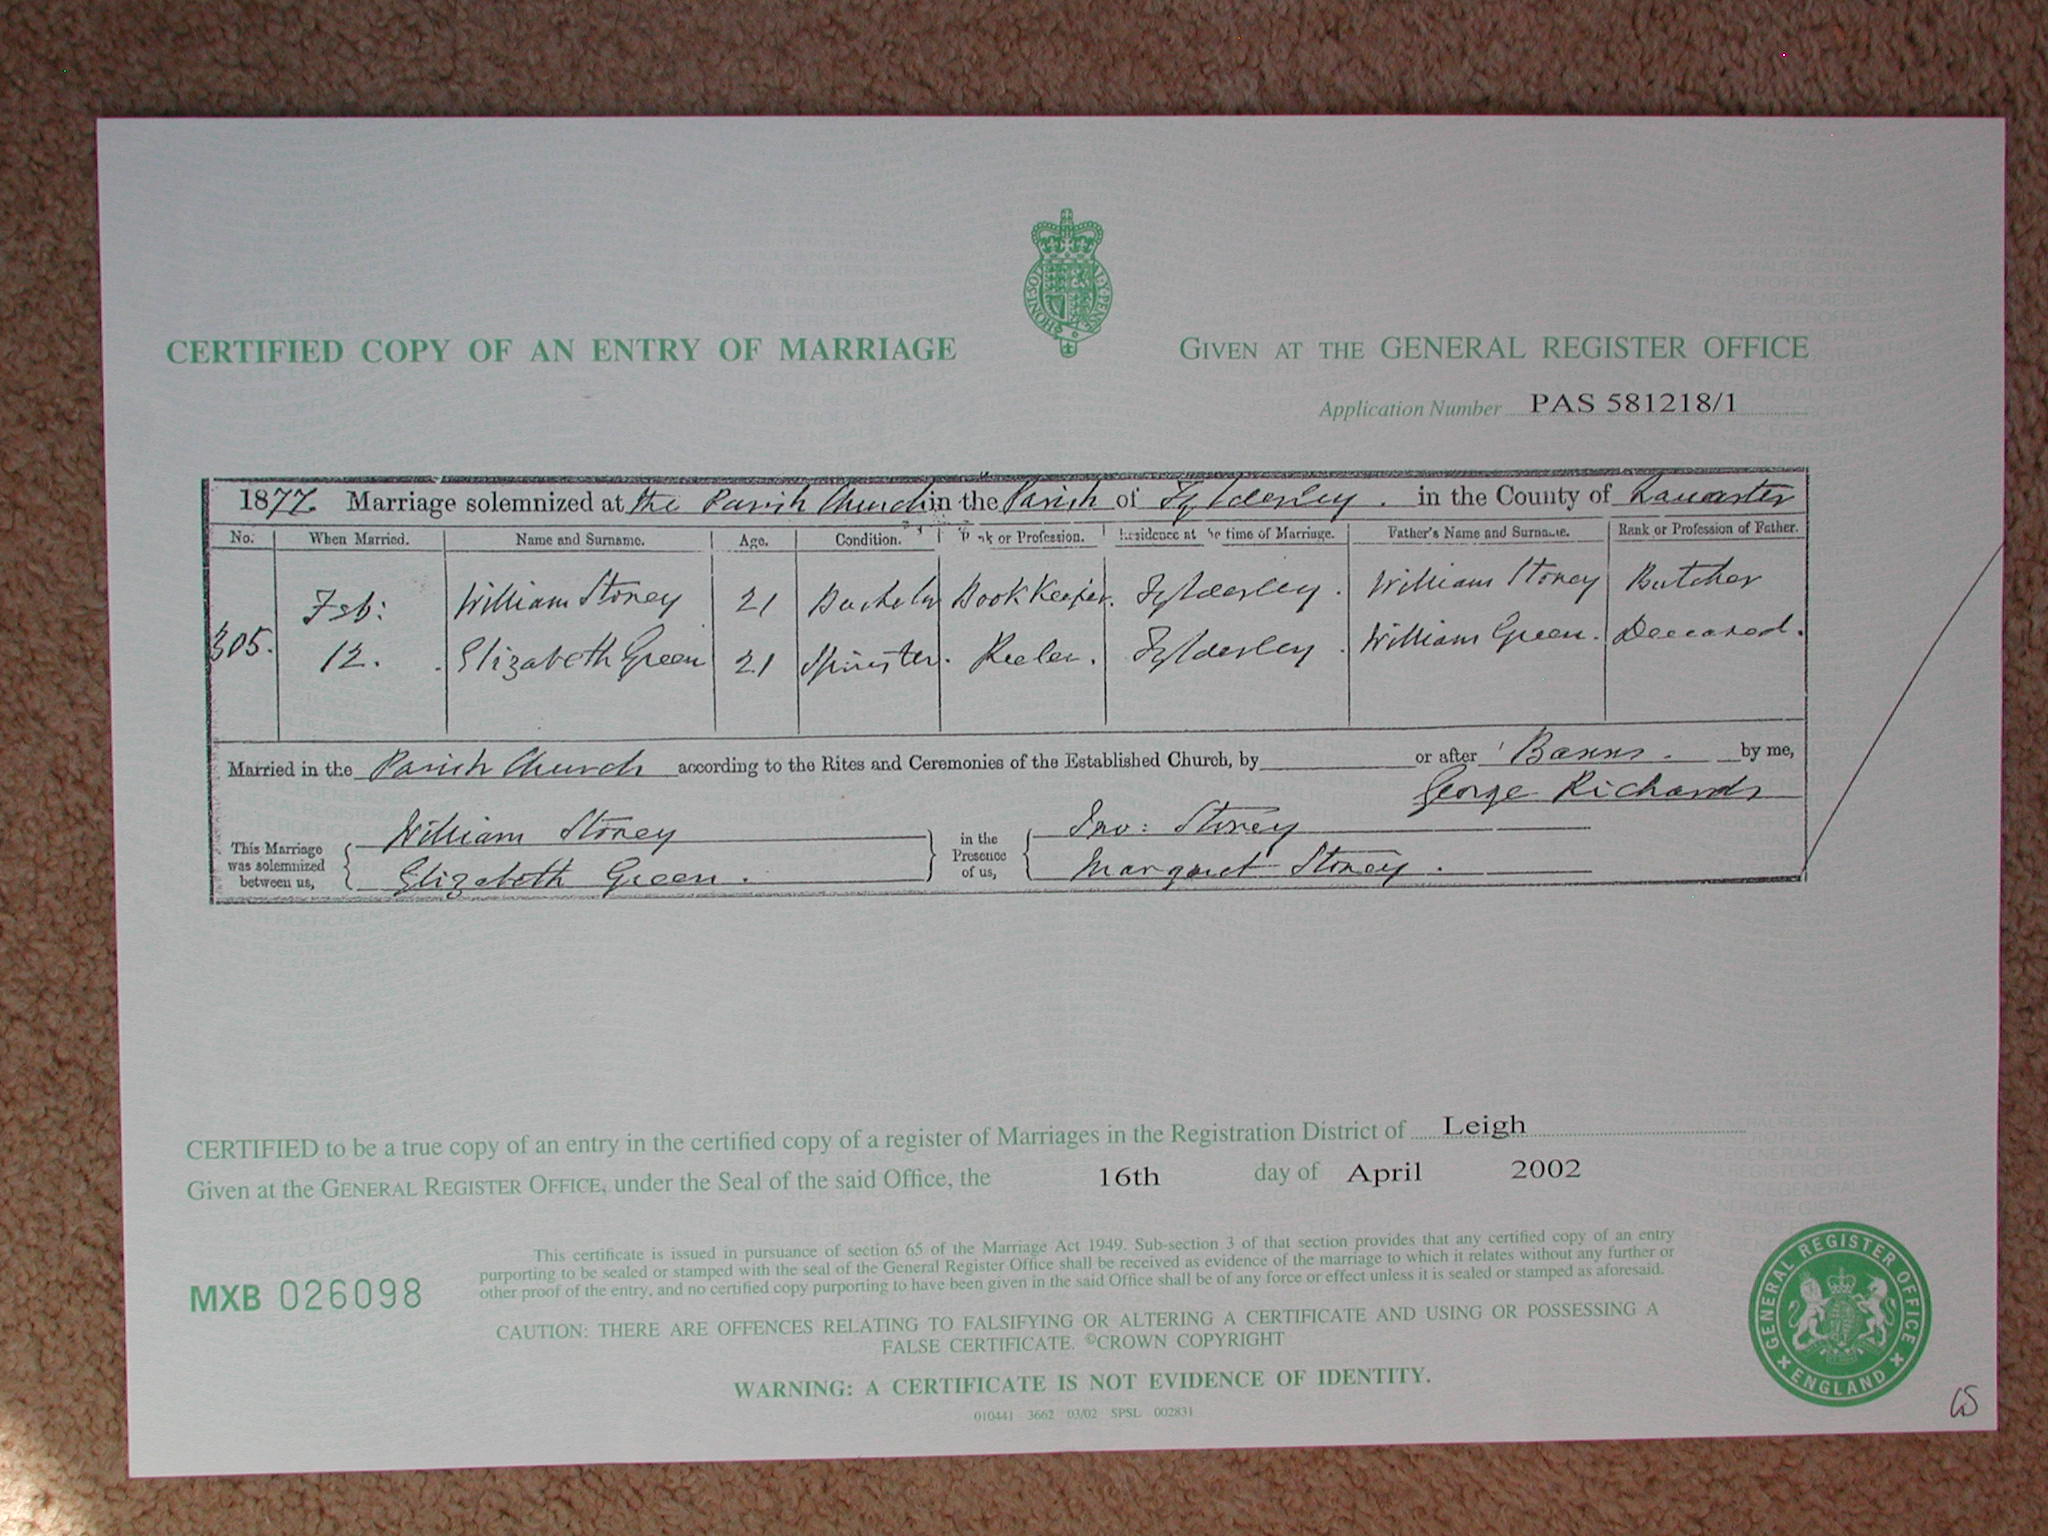 CERTIFIED COPY OF AN ENTRY OF MARRIAGE
GIVEN AT THE GENERAL REGISTER OFFICE
Application Number PAS 581218/1
1877. Marriage solemnized at the Parish Church in the Parish of Tyldesley. in the County of Lancaster
No. When Married. Name and Surname. Age. Condition. Rank or Profession. Residence at the time of Marriage. Father's Name and Surname. Rank or Profession of Father.
305. Feb: 12. William Stoney 21 Bachelor Book Keeper. Tyldesley. William Stoney Butcher
Elizabeth Green 21 Spinster. Reeler. Tyldesley. William Green. Deceased.
Married in the Parish Church according to the Rites and Ceremonies of the Established Church, by or after Banns. by me,
George Richards
This Marriage was solemnized between us,
William Stoney
Elizabeth Green.
in the Presence of us,
Jno: Stoney
Margaret Stoney.
CERTIFIED to be a true copy of an entry in the certified copy of a register of Marriages in the Registration District of Leigh
Given at the GENERAL REGISTER OFFICE, under the Seal of the said Office, the 16th day of April 2002
This certificate is issued in pursuance of section 65 of the Marriage Act 1949. Sub-section 3 of that section provides that any certified copy of an entry
purporting to be sealed or stamped with the seal of the General Register Office shall be received as evidence of the marriage to which it relates without any further or
other proof of the entry, and no certified copy purporting to have been given in the said Office shall be of any force or effect unless it is sealed or stamped as aforesaid.
MXB 026098
CAUTION: THERE ARE OFFENCES RELATING TO FALSIFYING OR ALTERING A CERTIFICATE AND USING OR POSSESSING A
FALSE CERTIFICATE. ©CROWN COPYRIGHT
WARNING: A CERTIFICATE IS NOT EVIDENCE OF IDENTITY.
010441 3662 03/02 SPSL 002831
GENERAL REGISTER OFFICE
ENGLAND